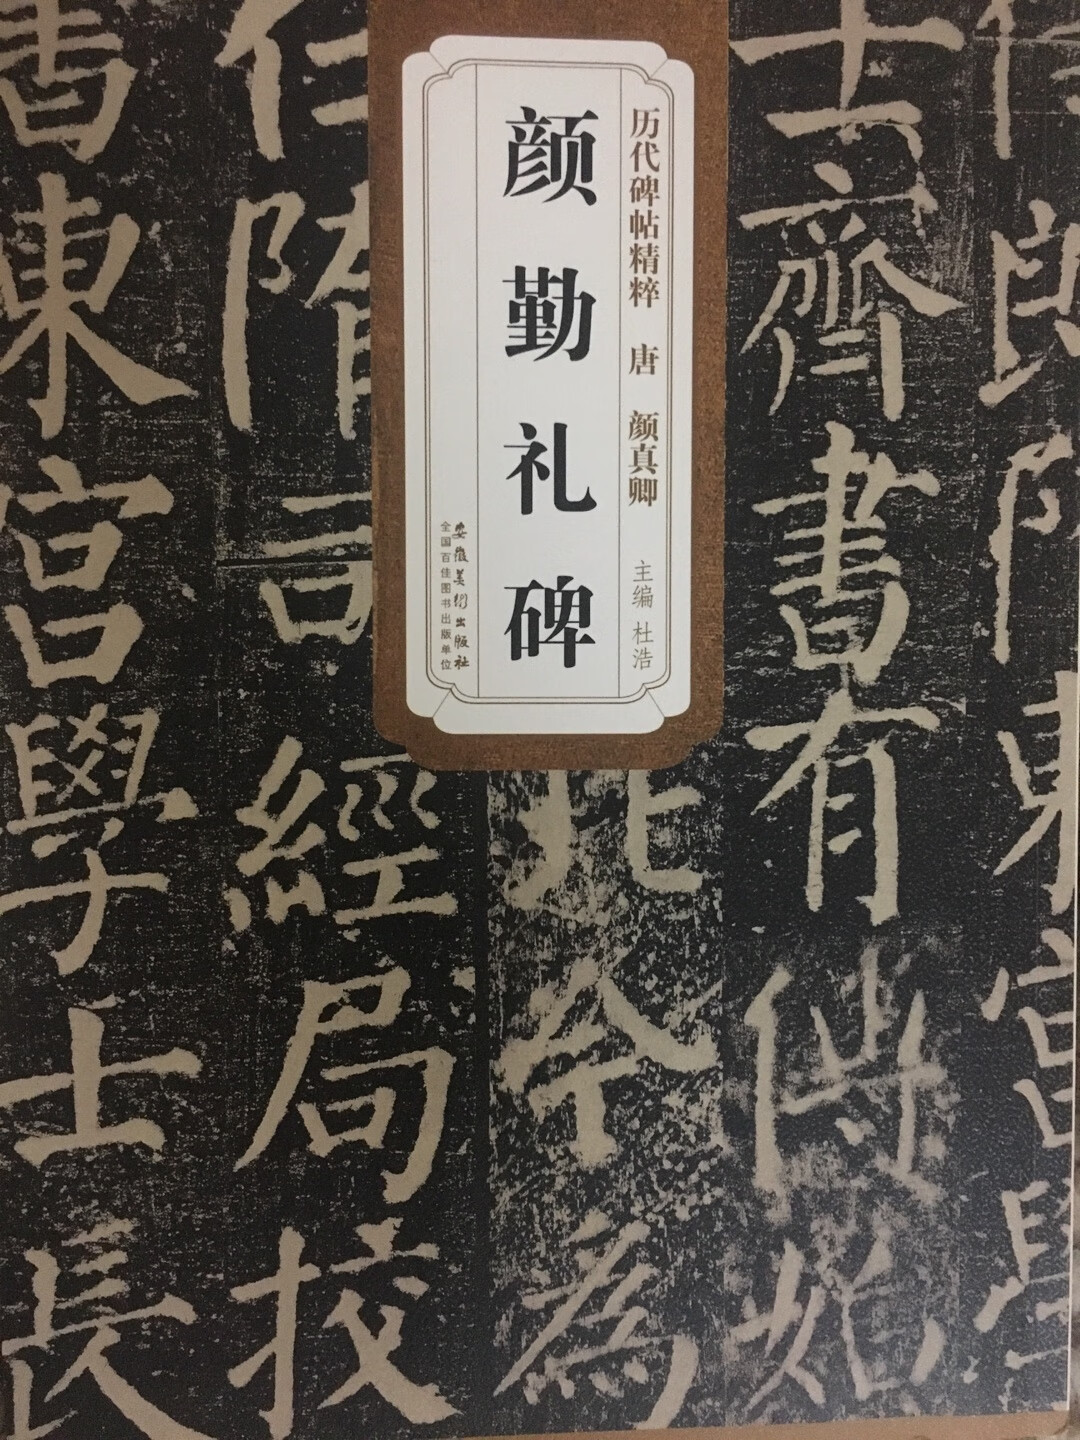 历代碑帖精粹 唐 颜真卿 主编 杜浩
颜勤礼碑
安徽美术出版社
全国百佳图书出版单位
士齊書有
北令為
任隋司經局校
書東宮學士長